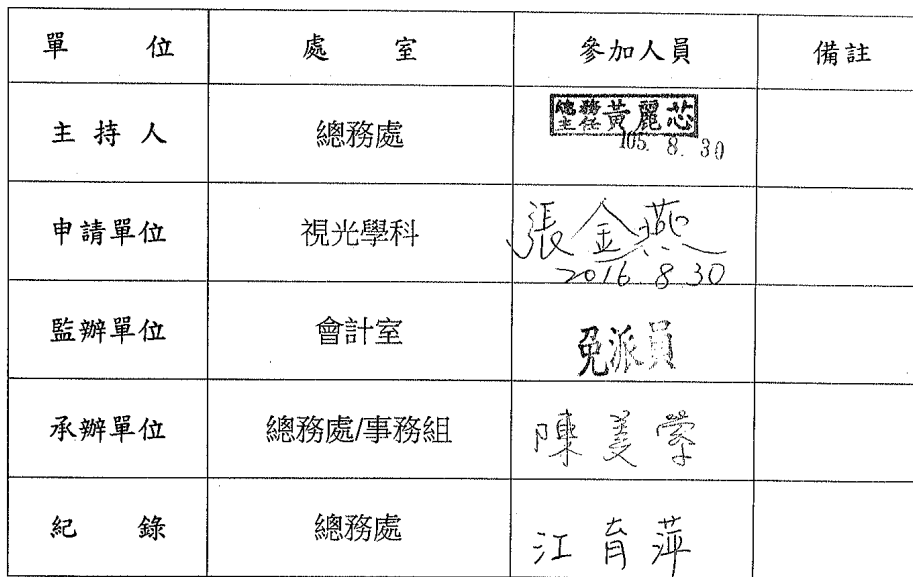 單 位 處 室 參加人員 備註
主 持 人 總務處 總務主任 黃麗芯
105. 8. 30
申請單位 視光學科 張金燕
2016. 8. 30
監辦單位 會計室 免派員
承辦單位 總務處/事務組 陳美縈
紀 錄 總務處 江育萍